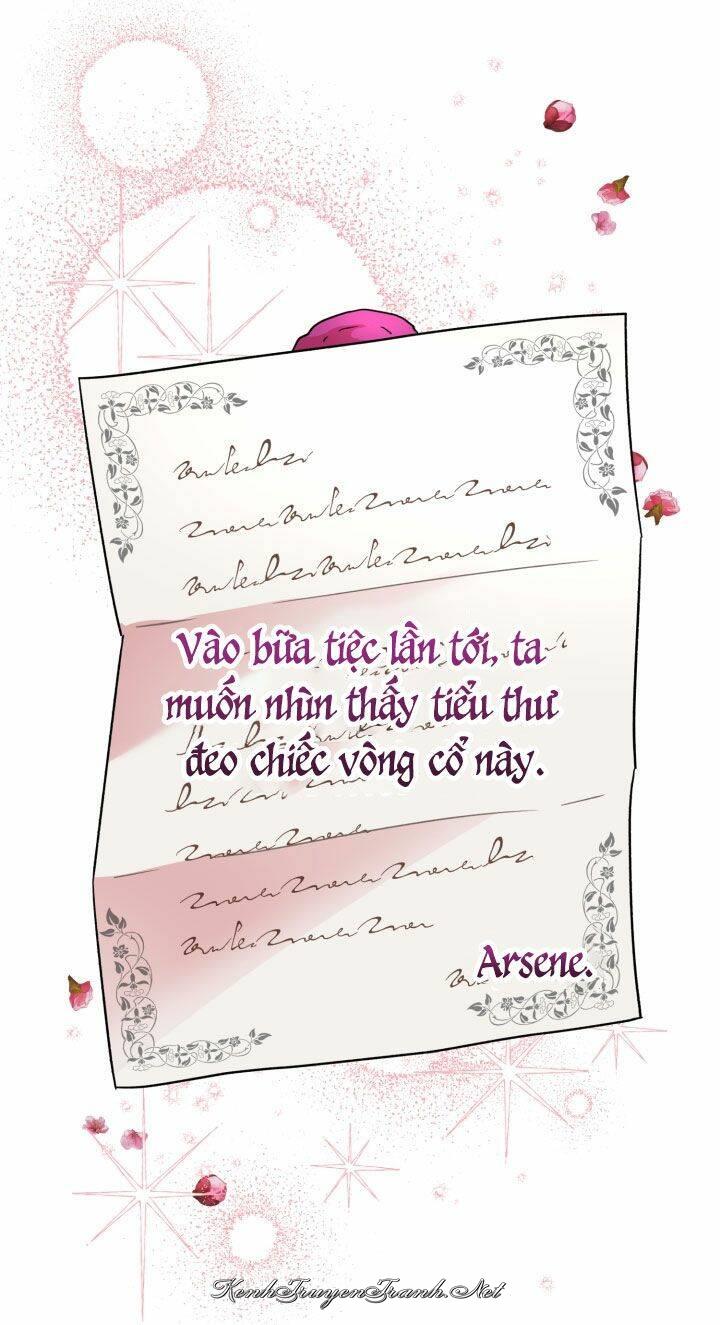 Vào bữa tiệc lần tới, ta
muốn nhìn thấy tiểu thư
đeo chiếc vòng cổ này.
Arsene.
KenhTruyenTranh.Net